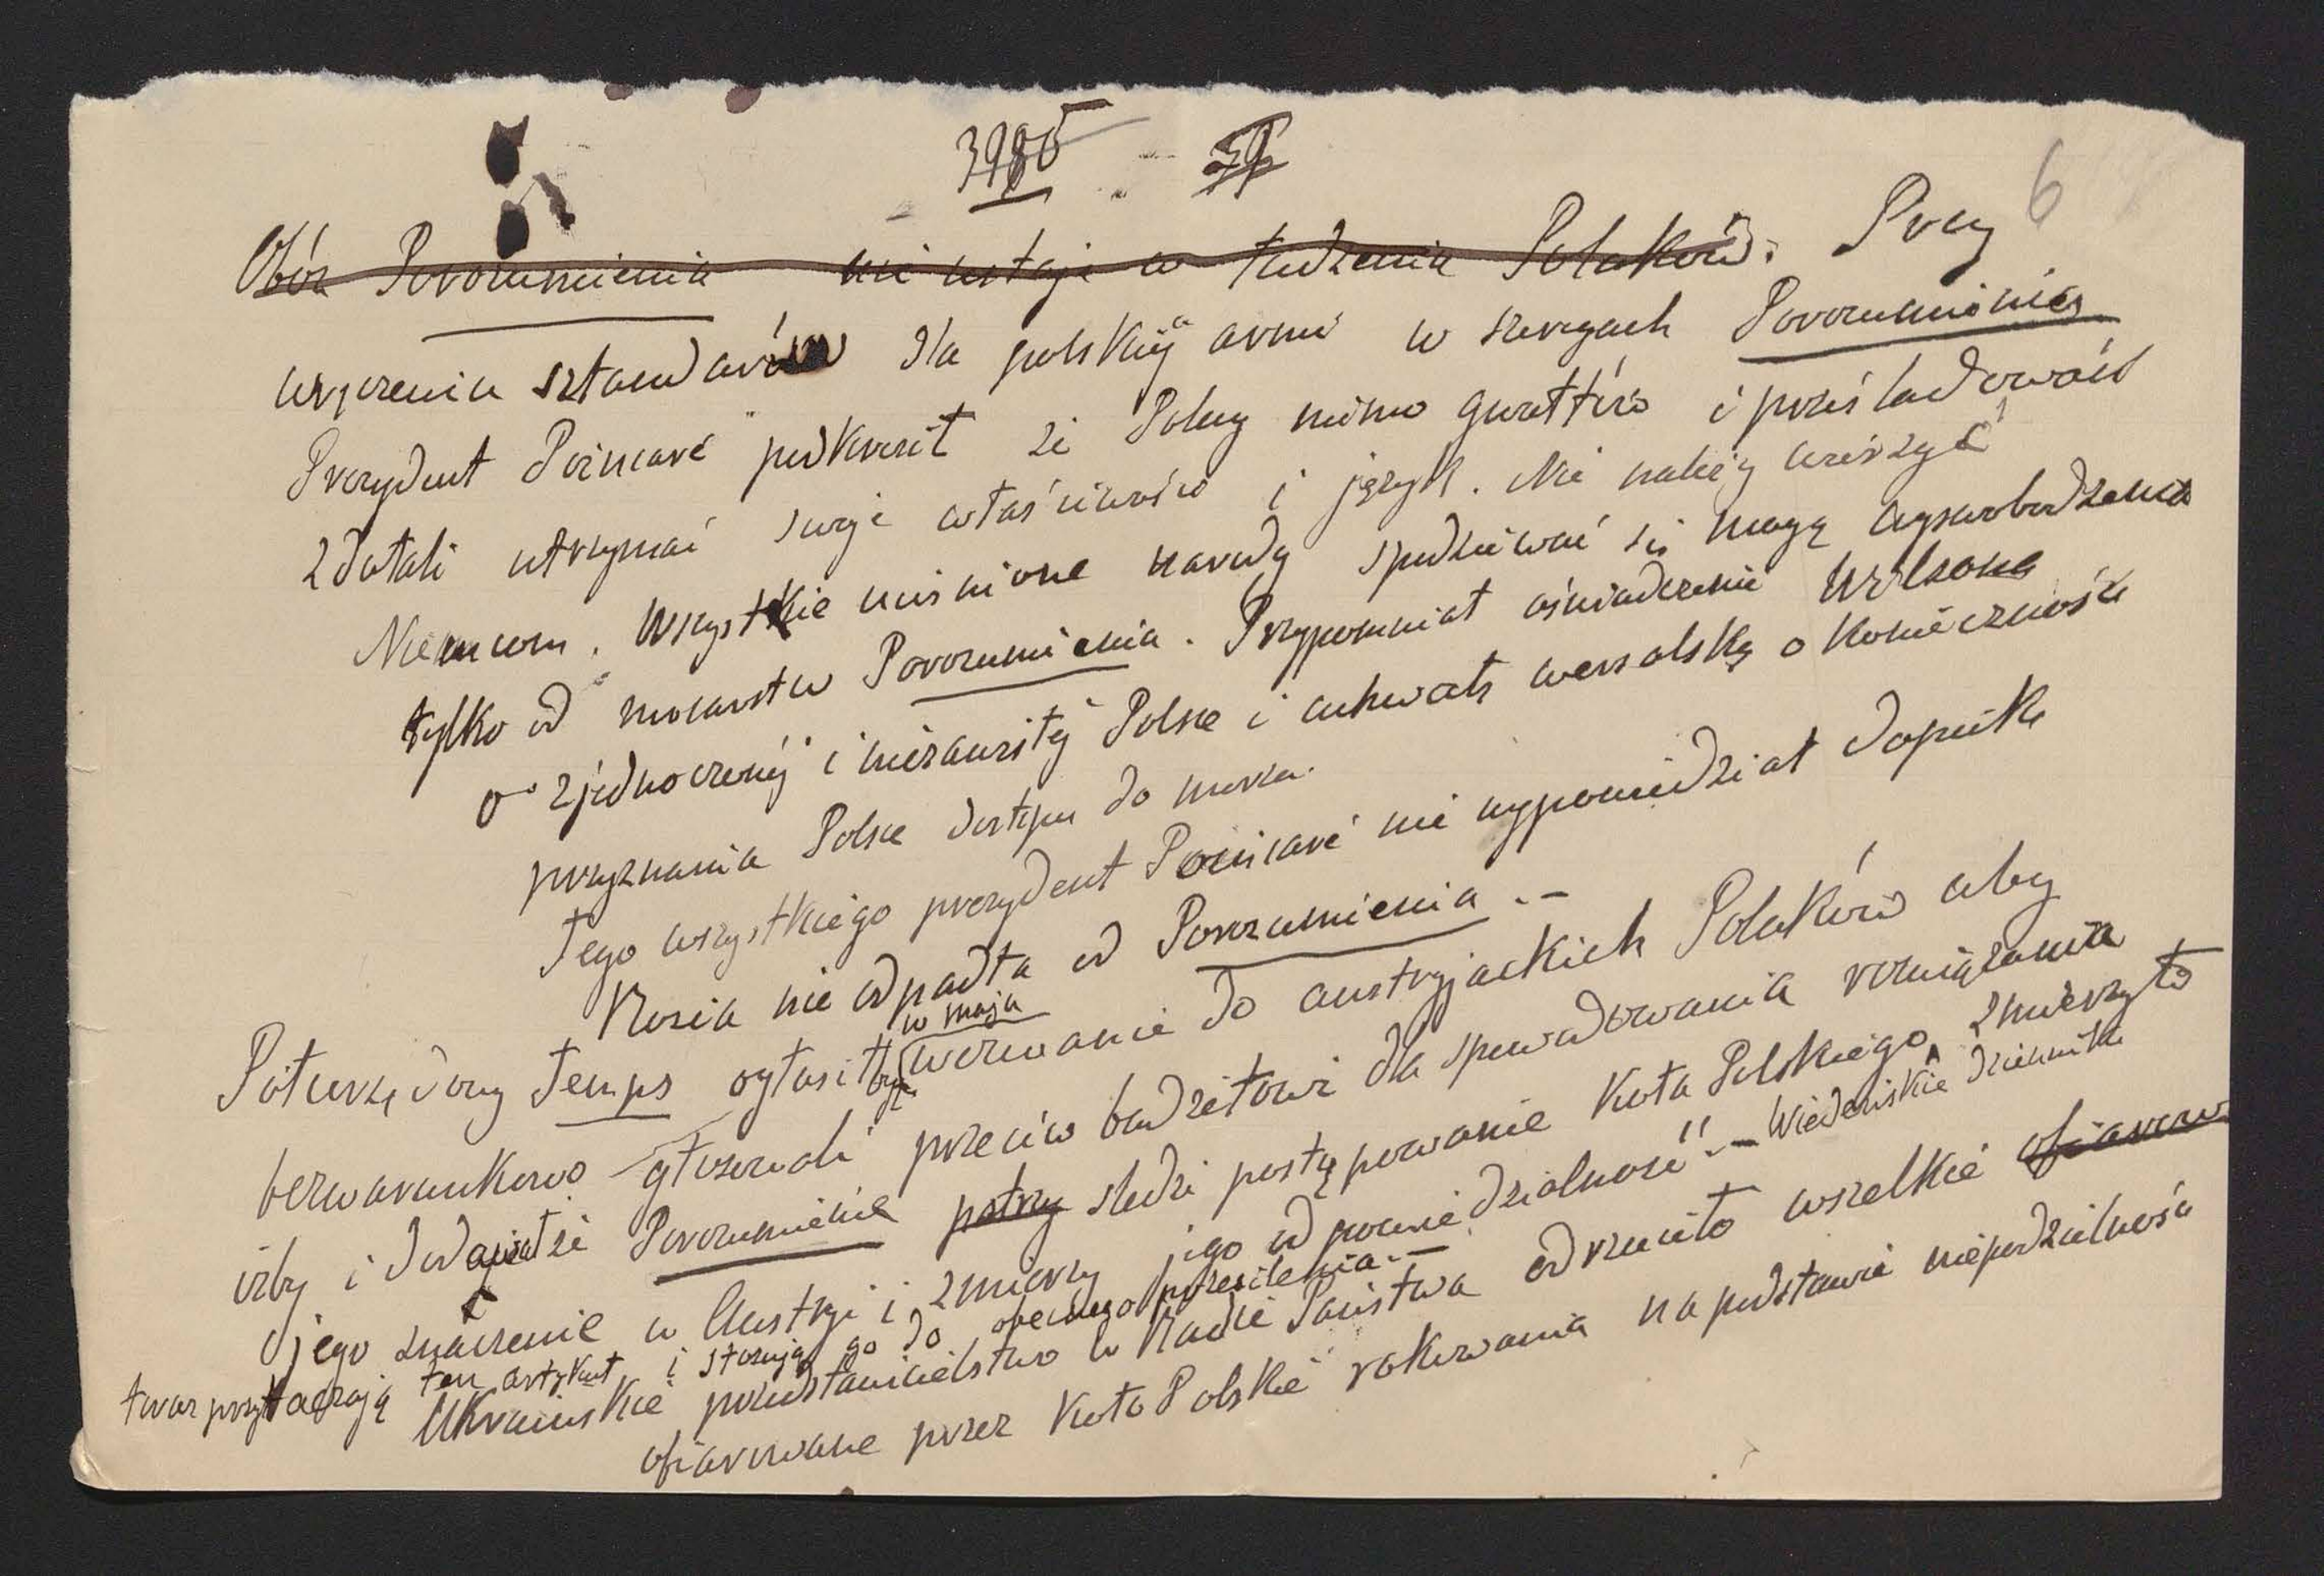 3985
6
Obóz Porozumienia nie ustaje w łudzeniu Polaków. Przy
wręczeniu sztandarów dla polskiej armii w szeregach Porozumienia
Prezydent Poincaré podkreślił że Polacy mimo gwałtów i prześladowań
zdołali utrzymać swoje właściwości i język. Nie należy wierzyć
Niemcom. Wszystkie uciśnione narody spodziewać się mogą wyswobodzenia
tylko od mocarstw Porozumienia. Przypomniał oświadczenie Wilsona
o zjednoczonej i niezawisłej Polsce i uchwałę wersalską o konieczności
przyznania Polsce dostępu do morza.
Tego wszystkiego prezydent Poincaré nie wypowiedział dopóki
Rosja nie odpadła od Porozumienia. –
w maju
Półurzędowy Temps ogłosił wezwanie do austryjackich Polaków aby
bezwarunkowo głosowali przeciw budżetowi dla spowodowania rozwiązania
izby i dodał że Porozumienie patrzy śledzi postępowanie Koła Polskiego, zmierzyło
jego znaczenie w Austrji i zmierzy jego odpowiedzialność". – Wiedeńskie dzienniki
teraz przytaczają ten artykuł i stosują go do obecnego przesilenia. –
Ukraińskie przedstawicielstwo w Radzie Państwa odrzuciło wszelkie ofiarow
ofiarowane przez Koło Polskie rokowania na podstawie niepodzielności